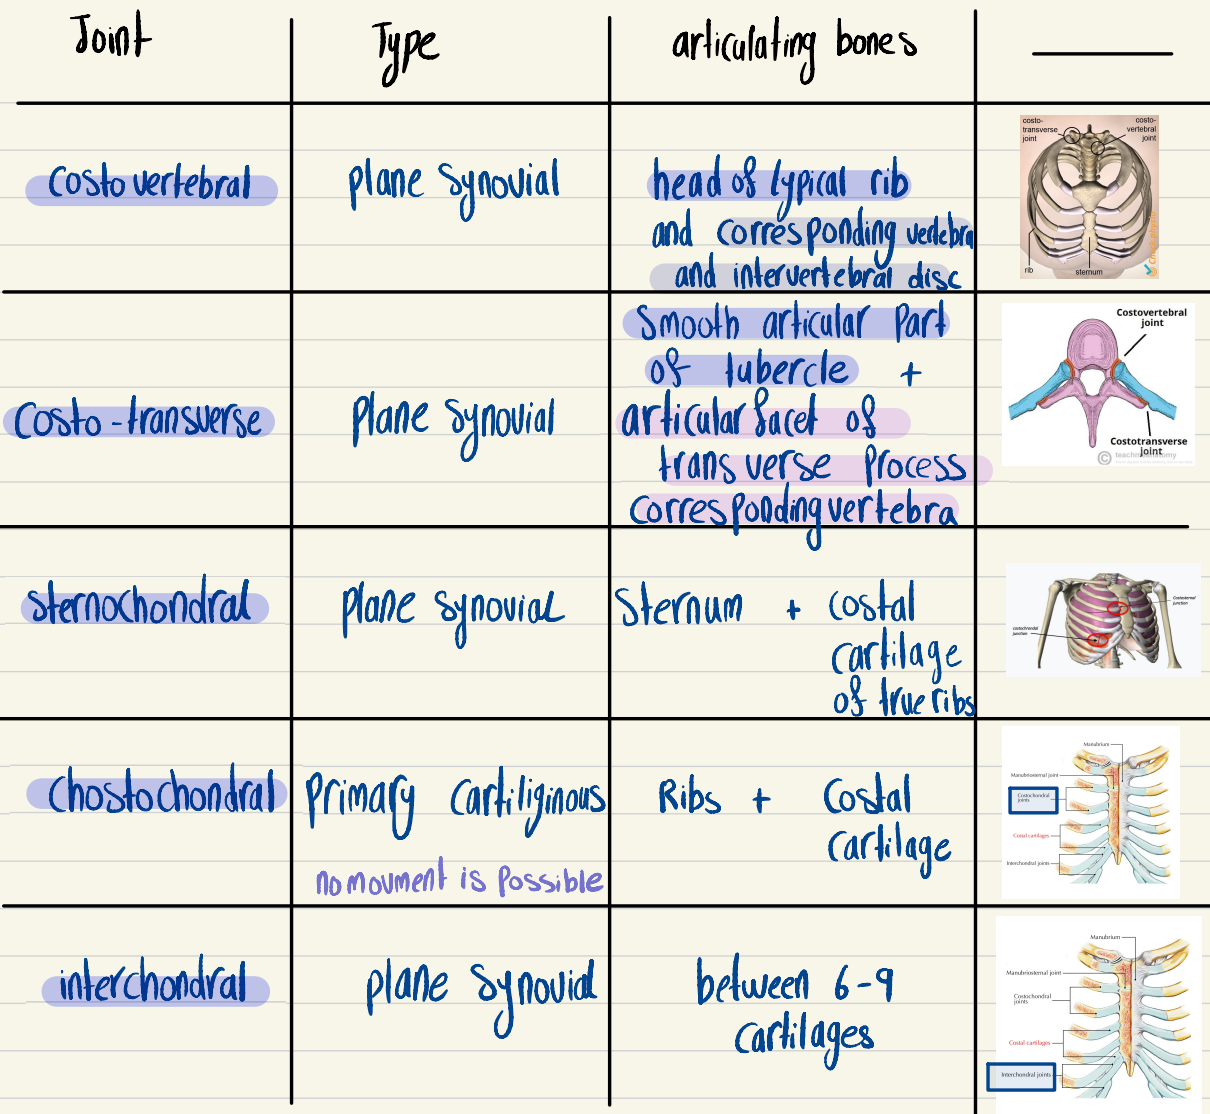 Joint
Type
articulating bones
Costovertebral
plane Synovial
head of typical rib
and corresponding vertebra
and intervertebral disc
costo-
transverse
joint
costo-
vertebral
joint
rib
sternum
Costo-transverse
Plane Synovial
Smooth articular Part
of tubercle +
articular facet of
transverse Process
corresponding vertebra
Costovertebral
joint
Costotransverse
joint
©
sternochondral
plane synovial
Sternum + costal
cartilage
of true ribs
Costosternal
junction
costochondral
junction
Chostochondral
Primary Cartiliginous
no movment is Possible
Ribs + Costal
cartilage
Manubrium
Manubriosternal joint
Costochondral
joints
Costal cartilages
Interchondral joints
interchondral
plane Synovial
between 6-9
cartilages
Manubrium
Manubriosternal joint
Costochondral
joints
Costal cartilages
Interchondral joints